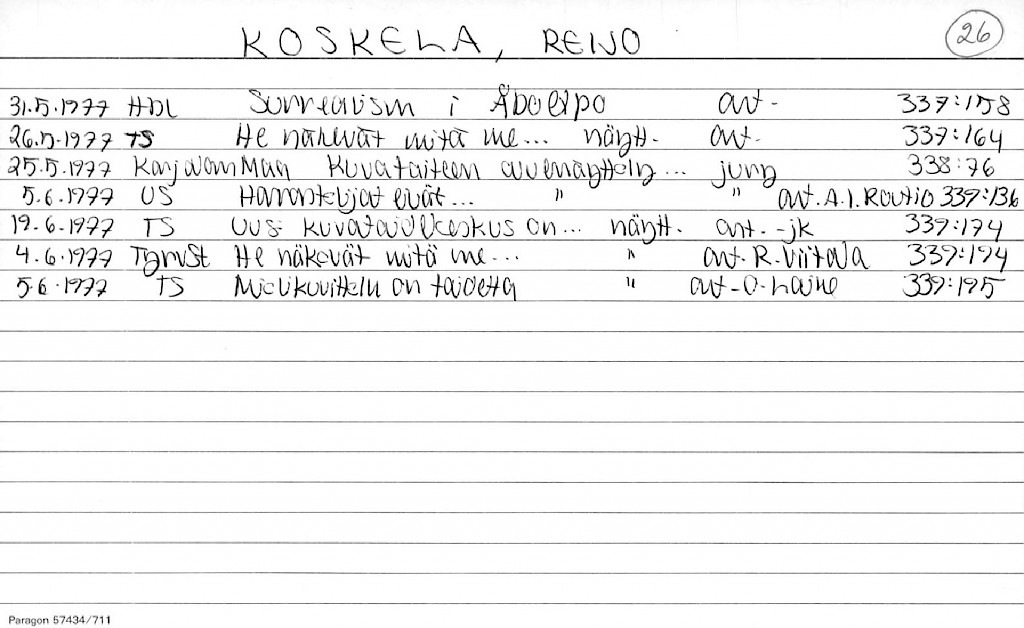 KOSKELA, REIJO 26
31.5.1977 HBL Surrealism i Åboexpo art- 339:158
26.5.1977 TS He näkevät mitä me... näytt. art- 339:164
25.5.1977 Karjalan Maa Kuvataiteen suurnäyttely... 338:76
5.6.1977 US Harrontekijät eivät... " " art. A.I. Routio 339:136
19.6.1977 TS Uusi kuvataidekeskus on... näytt. art. -jk 339:174
4.6.1977 He näkevät mitä me... " art. R. Viitala 339:194
5.6.1977 TS Mielikuvittelu on taidetta " art- O. Laine 339:195
Paragon 57434/711